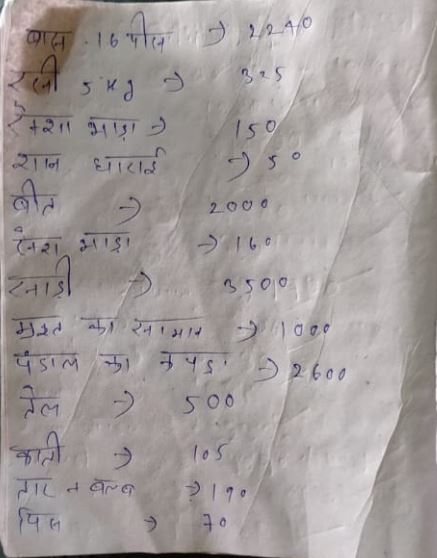 बास 16 पीस → 2240
रसी 5 kg → 325
रेक्शा भाड़ा → 150
शान धाराई → 50
बीत → 2000
रेक्शा भाड़ा → 160
साड़ी → 3500
का सामान → 1000
पंडाल का कपड़ा → 2600
तेल → 500
काती → 105
तार + बल्ब → 190
पिन → 70